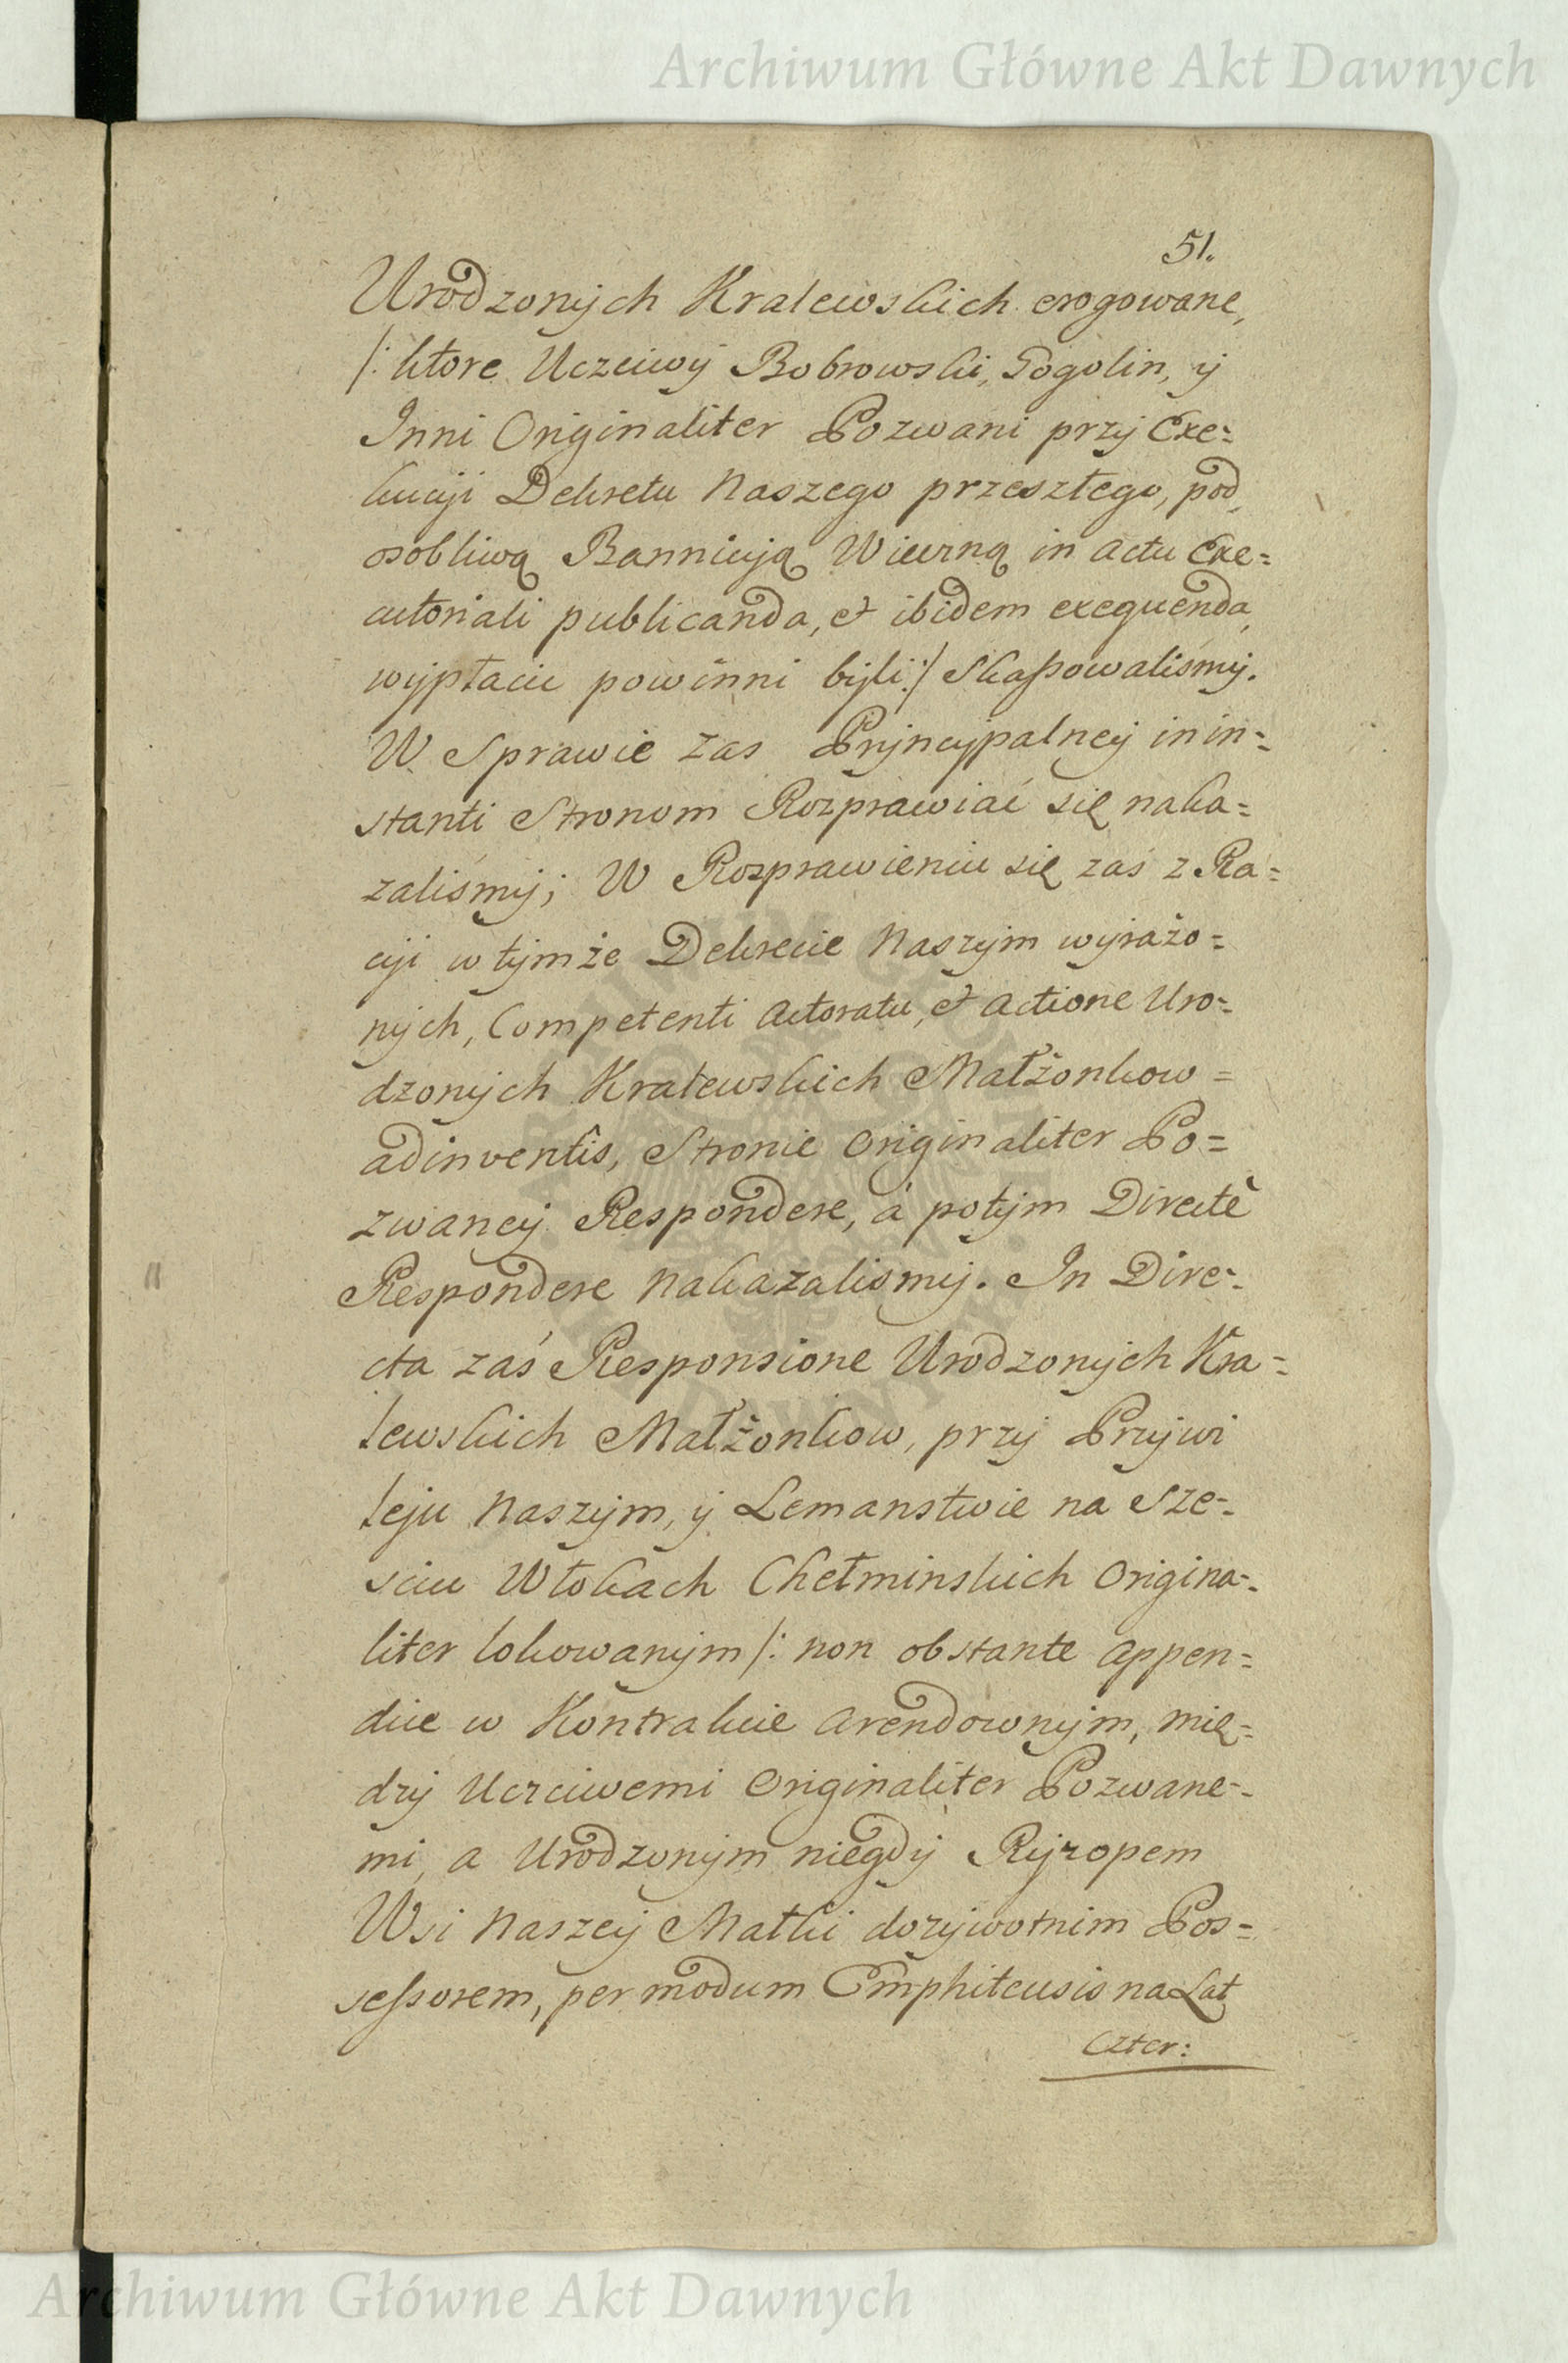 Archiwum Główne Akt Dawnych
51.
Urodzonych Kralewskich erogowane,
/: ktore Uczciwy Bobrowski, Gogolin, y
Inni Originaliter Pozwani przy Exe=
kucyi Dekretu Naszego przeszłego, pod
osobliwą Bannicyą Wieczną in actu Exe=
cutoriali publicanda, et ibidem exequenda,
wypłacic powinni byli :/ Skassowalismy.
W Sprawie zas Pryncypalney in in=
stanti Stronom Rozprawiać się naka=
zalismy; W Rozprawieniu się zaś z Ra=
cyi w tymże Dekrecie Naszym wyrażo=
nych, Competenti Actoratu, et Actione Uro=
dzonych Kralewskich Małżonkow =
adinventis, Stronie Originaliter Po=
zwaney Respondere, á potym Directè
Respondere nakazalismy. In Dire=
cta zaś Responsione Urodzonych Kra=
lewskich Małżonkow, przy Przywi
leju Naszym, y Lemanstwie na Sze=
sciu Włokach Chełminskich Origina=
liter lokowanym /: non obstante appen=
dice w Kontrakcie Arendownym, mię=
dzy Uczciwemi Originaliter Pozwane=
mi, a Urodzonym niegdy Ryzopem
Wsi Naszey Matki dozywotnim Pos=
sessorem, per modum Emphiteusis na Lat
Czter:
Archiwum Główne Akt Dawnych